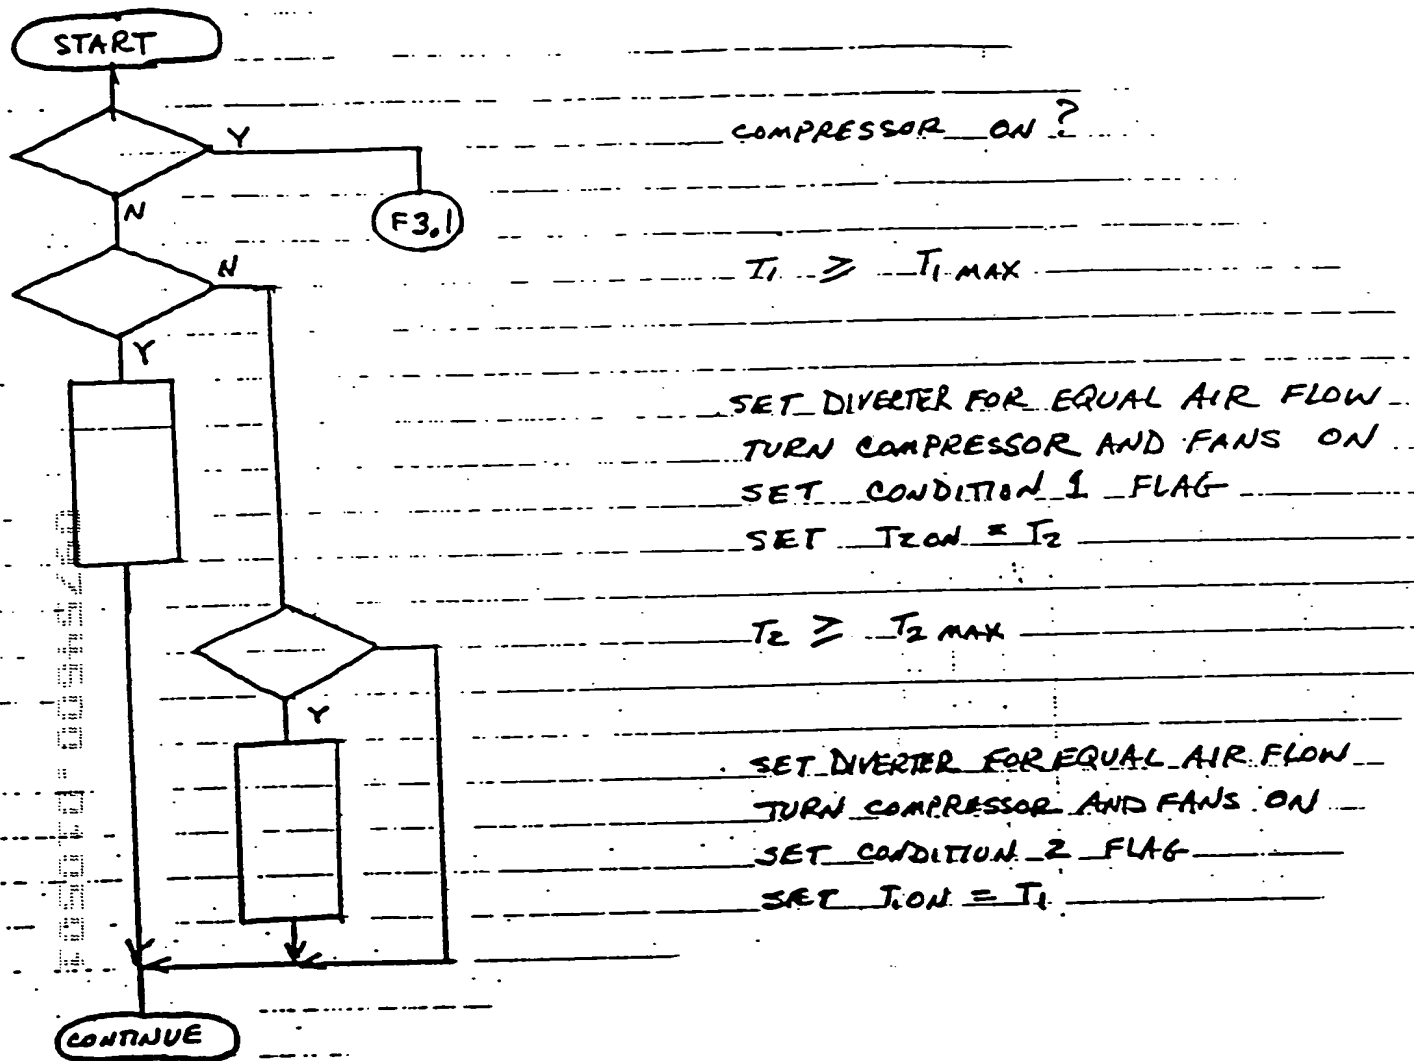 START
Y
COMPRESSOR ON ?
N
F3.1
N
T1 ≥ T1 MAX
Y
SET DIVERTER FOR EQUAL AIR FLOW
TURN COMPRESSOR AND FANS ON
SET CONDITION 1 FLAG
SET T2ON = T2
T2 ≥ T2 MAX
Y
SET DIVERTER FOR EQUAL AIR FLOW
TURN COMPRESSOR AND FANS ON
SET CONDITION 2 FLAG
SET T1ON = T1
CONTINUE